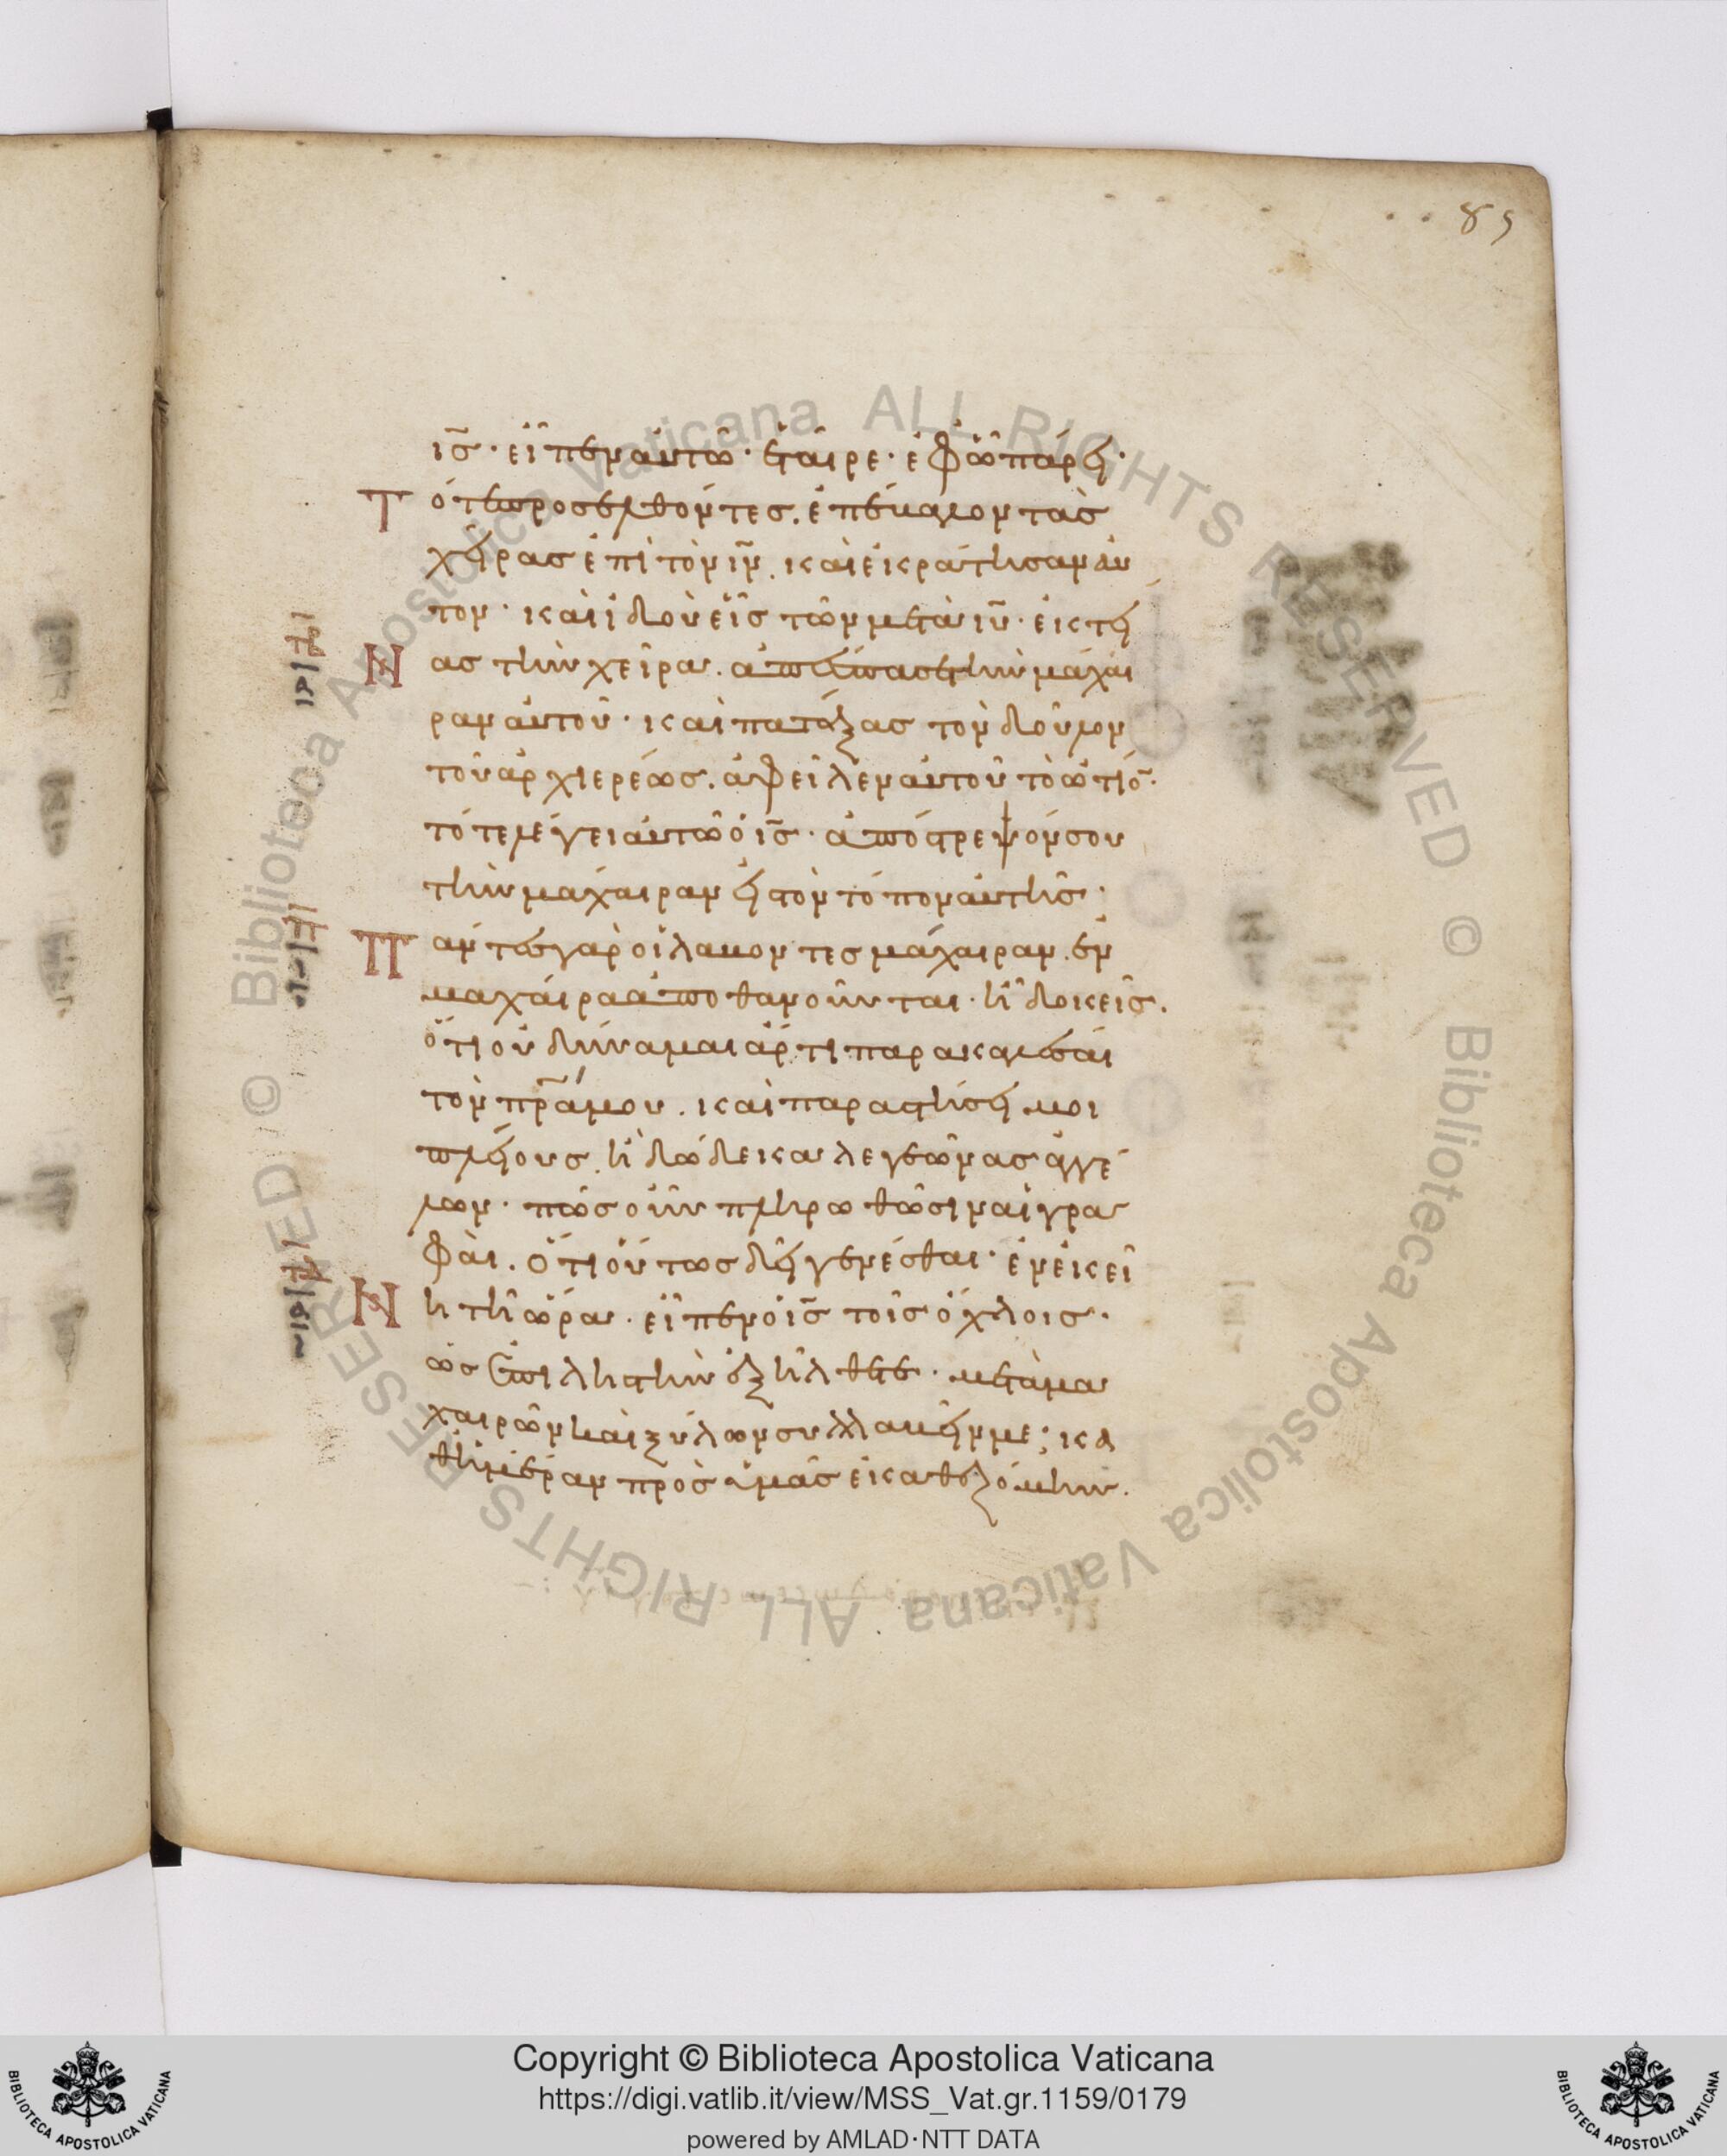 85
ις̄ · εἶπεν αὐτῶ · ἑταῖρε · ἐφ ὧ πάρει ·
Τότε προσελθόντες. ἐπέβαλον τὰς
χεῖρας ἐπὶ τὸν ιν̄. καὶ ἐκράτησαν αὐ
τον · καὶ ἰδοὺ εἷς τῶν μετὰ ιῡ · ἐκτεί
Ν ας τὴν χεῖρα. ἀπέσπασε τὴν μάχαι
ραν αὐτοῦ · καὶ πατάξας τὸν δοῦλον
τοῦ ἀρχιερέως. ἀφεῖλεν αὐτοῦ τὸ ὠτίο̄ ·
τότε λέγει αὐτῶ ὁ ις̄ · ἀπόστρεψόν σου
τὴν μάχαιραν εἰς τὸν τόπον αὐτῆς ·
Πάντες γὰρ οἱ λαβόντες μάχαιραν. ἐν
μαχαίρα ἀποθανοῦνται · ἢ δοκεῖς.
ὅτι οὐ δύναμαι ἄρτι παρακαλέσαι
τὸν πρ̄α μου. καὶ παραστήσει μοι
πλείους. ἢ δώδεκα λεγεῶνας ἀγγέ
λων · πῶς οὖν πληρωθῶσιν αἱ γρα
φαὶ. ὅτι οὕτως δεῖ γενέσθαι · ἐν ἐκεί
Ν η τῆ ὥρα · εἶπεν ὁ ις̄ τοῖς ὄχλοις ·
ὡς ἐπὶ ληστὴν ἐξήλθετε · μετὰ μα
χαιρῶν καὶ ξύλων συλλαβεῖν με; κα
θ ἡμέραν πρὸς ὑμᾶς ἐκαθεζόμην.
Copyright © Biblioteca Apostolica Vaticana
https://digi.vatlib.it/view/MSS_Vat.gr.1159/0179
powered by AMLAD·NTT DATA
BIBLIOTECA APOSTOLICA VATICANA
BIBLIOTECA APOSTOLICA VATICANA
Biblioteca Apostolica Vaticana ALL RIGHTS RESERVED ©
Biblioteca Apostolica Vaticana ALL RIGHTS RESERVED ©